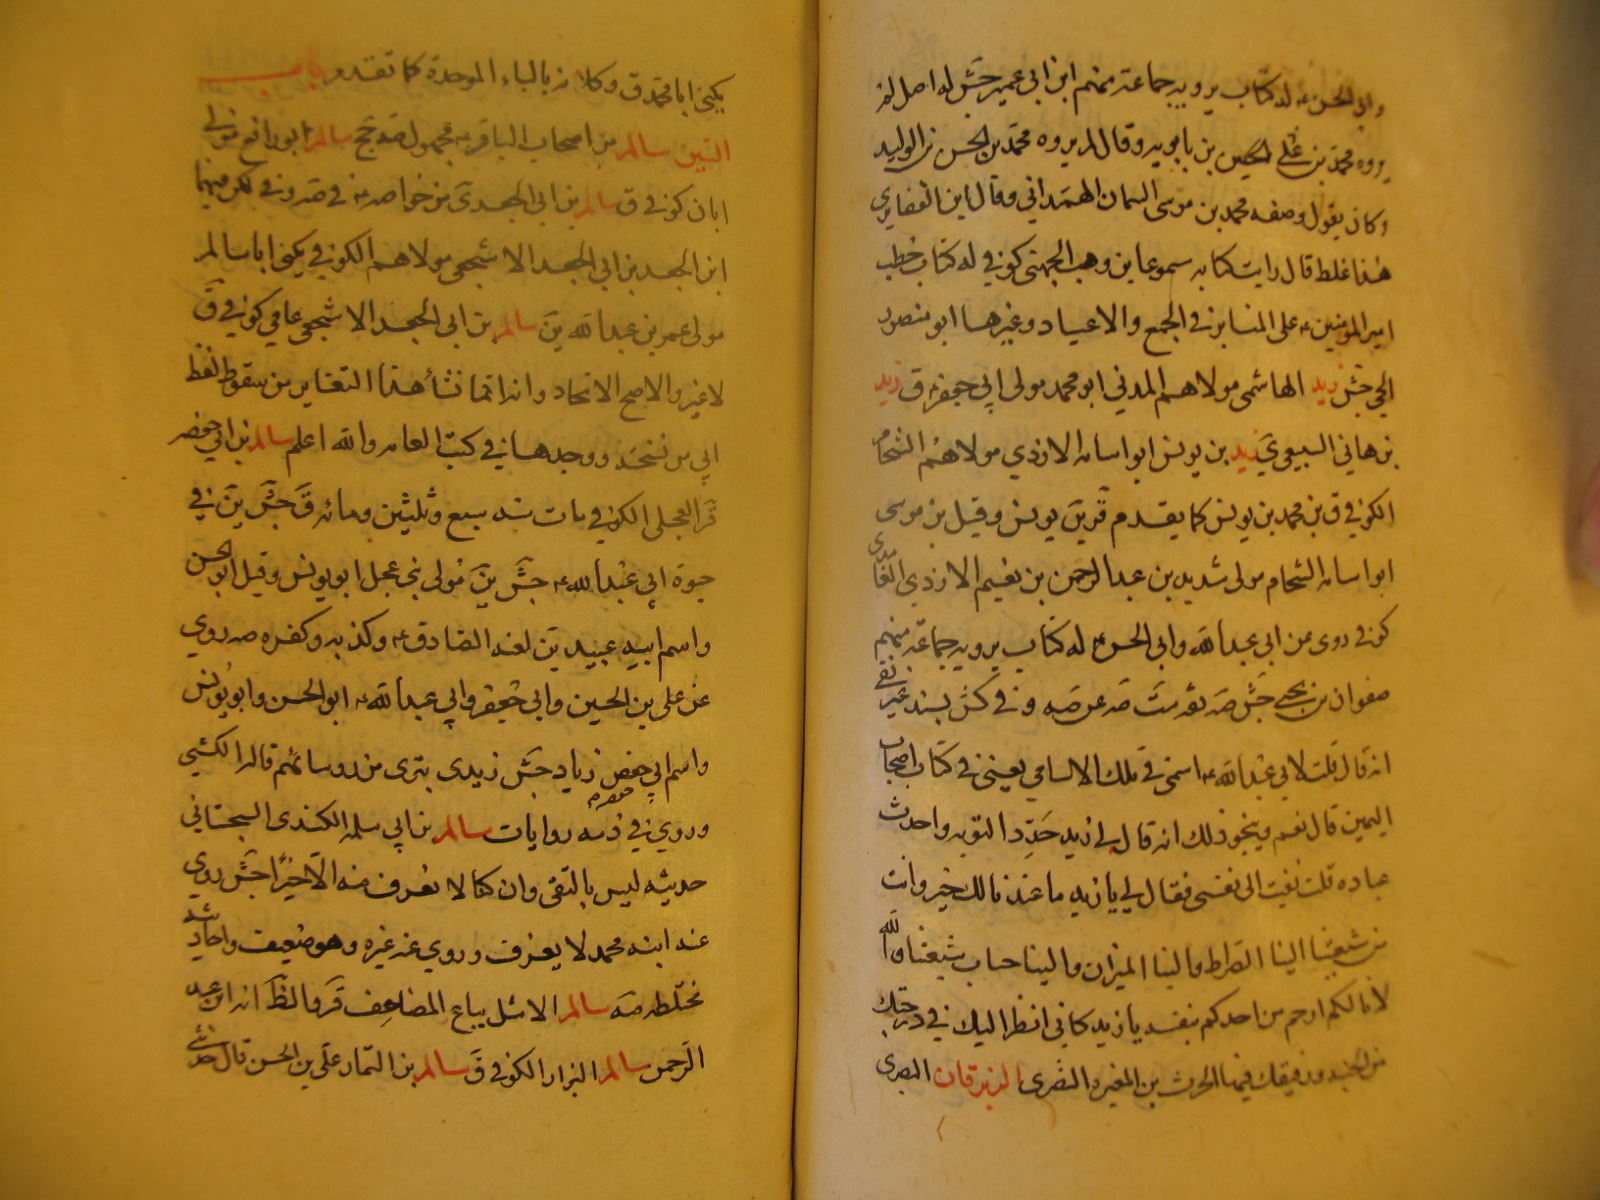 وابي الحسن ع له كتاب يرويه جماعة منهم ابن ابي عمير جش له اصل لم
يروه محمد بن علي بن الحسين بن بابويه وقال لم يروه محمد بن الحسن بن الوليد
وكان يقول وضعه محمد بن موسى السمان الهمداني وقال ابن الغضايري
هذا غلط قال رايت كتابه مسموعا بن وهب الجهني كوفي له كتاب خطب
امير المؤمنين ع على المنابر في الجمع والاعياد وغيرها ابو منصور
الجي جش زيد الهاشمي مولاهم المدني ابو محمد مولى ابي جعفر ع ق زيد
بن هاني السبيعي ي زيد بن يونس ابو اسامه الازدي مولاهم الشحام
الكوفي ق بن محمد بن يونس كما يقدم قر ين يونس وقيل بن موسى
ابو اسامه الشحام مولى شديد بن عبد الرحمن بن نعيم الازدي الغامدى
كوفي روى عن ابي عبد الله وابي الحسن ع له كتاب يرويه جماعة منهم
صفوان بن يحيى جش صه ثقه ست صه عن صه و في كش بسند غير نقي
انه قال قلت لابي عبد الله ع اسمي في تلك الاسامي يعني في كتاب اصحاب
اليمين قال نعم وينحو ذلك انه قال لي زيد جدد التوبه واحدث
عباده قلت نعيت الي نفسي فقال لي يا زيد ما عندنا لك خير وانت
من شيعتنا الينا الصراط والينا الميزان والينا حساب شيعتنا والله
لانا لكم ارحم من احدكم بنفسه يا زيد كاني انظر اليك في درجتك
من الجنه ورفيقك فيها الحرث بن المغيره النضرى الزبرقان البصرى
يكنى ابا محمد ق وكلا ن بالباء الموحدة كما تقدم باب
السين سالم من اصحاب الباقر ع مجهول صه جج سالم ابو رافع مولى
ابان كوفي ق سالم بن ابي الجعد ى من خواصه ع في صه و في كر منهما
ابن الجعد بن ابي الجعد الاشجعي مولاهم الكوفي يكنى ابا سالم
مولى عمر بن عبد الله ين سالم بن ابي الجعد الاشجعي عامي كوفي ق
لا غير والاصح الاتحاد وانه انما نشأ هذا التغاير من سقوط لفظ
ابي من نسخته ووجدها في كتب العامه والله اعلم سالم بن ابي حفصه
قر العجلي الكوفي مات سنه سبع وثلثين ومائه ق جش ين في
حيوة ابي عبد الله ع جش ين مولى بني عجل ابو يونس وقيل ابو الحسن
واسم ابيه عبيد ين لعنه الصادق ع وكذبه وكفره صه روى
عن علي بن الحسين وابي جعفر وابي عبد الله ع ابو الحسن وابو يونس
واسم ابي حفصه زياد جش زيدى بتري من روسائهم قاله الكشي
وروى في ذمه روايات سالم بن ابي سلمه الكندى السجستاني
حديثه ليس بالنقي وان كنا لا نعرف منه الا خيرا جش روى
عنه ابنه محمد لا يعرف وروى عنه غيره وهو ضعيف واحاديثه
مختلطه صه سالم الاشل بياع المصاحف قر والظ انه ابن عبد
الرحمن سالم البزاز الكوفي ق سالم بن التمار علي بن الحسن قال حدثني